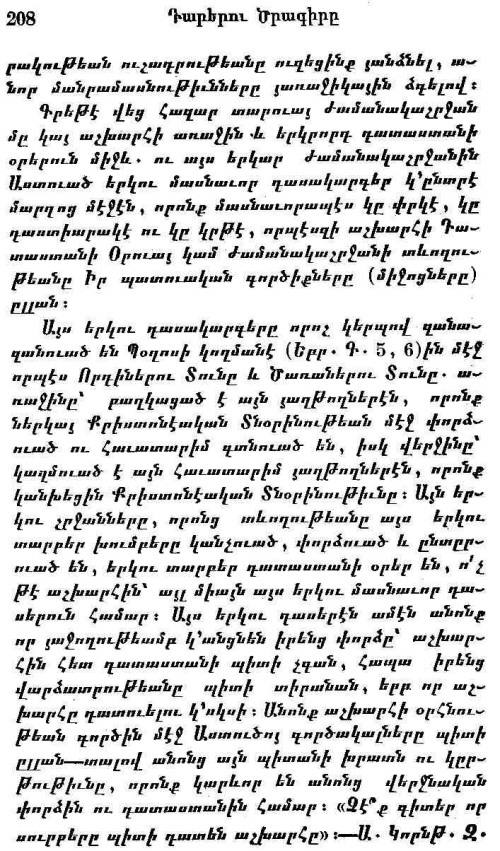 208 Դարերու Ծրագիրը
րակութեան ուշադրութեանը ուզեցինք յանձնել, ա-
նոր մանրամասնութիւնները յառաջիկային ձգելով։
Գրեթէ վեց հազար տարուայ ժամանակաշրջան
մը կայ աշխարհի առաջին և երկրորդ դատաստանի
օրերուն միջև. ու այս երկար ժամանակաշրջանին
Աստուած երկու մասնաւոր դասակարգեր կ'ընտրէ
մարդոց մէջէն, որոնք մասնաւորապէս կը փրկէ, կը
դաստիարակէ ու կը կրթէ, որպէսզի աշխարհի Դա-
տաստանի Օրուայ կամ ժամանակաշրջանի տևողու-
թեանը Իր պատուական գործիքները (միջոցները)
ըլլան։
Այս երկու դասակարգերը որոշ կերպով զանա-
զանուած են Պօղոսի կողմանէ (Եբր. Գ. 5, 6)ին մէջ
որպէս Որդիներու Տունը և Ծառաներու Տունը. ա-
ռաջինը՝ բաղկացած է այն յաղթողներէն, որոնք
ներկայ Քրիստոնէական Տնօրինութեան մէջ փորձ-
ուած ու հաւատարիմ գտնուած են, իսկ վերջինը՝
կազմուած է այն հաւատարիմ յաղթողներէն, որոնք
կանխեցին Քրիստոնէական Տնօրինութիւնը։ Այն եր-
կու շրջանները, որոնց տևողութեանը այս երկու
տարբեր խումբերը կանչուած, փորձուած և ընտրը-
ուած են, երկու տարբեր դատաստանի օրեր են, ո՛չ
թէ աշխարհին՝ այլ միայն այս երկու մասնաւոր դա-
սերուն համար։ Այս երկու դասերէն ամէն անոնք
որ յաջողութեամբ կ'անցնեն իրենց փորձը՝ աշխար-
հին հետ դատաստանի պիտի չգան, հապա իրենց
վարձատրութեանը պիտի տիրանան, երբ որ աշ-
խարհը դատուելու կ'սկսի։ Անոնք աշխարհի օրհնու-
թեան գործին մէջ Աստուծոյ գործակալները պիտի
ըլլան—տալով անոնց այն պիտանի խրատն ու կըր-
թութիւնը, որոնք կարևոր են անոնց վերջնական
փորձին ու դատաստանին համար։ «Չէ՞ք գիտեր որ
սուրբերը պիտի դատեն աշխարհը»։—Ա. Կորնթ. Զ.